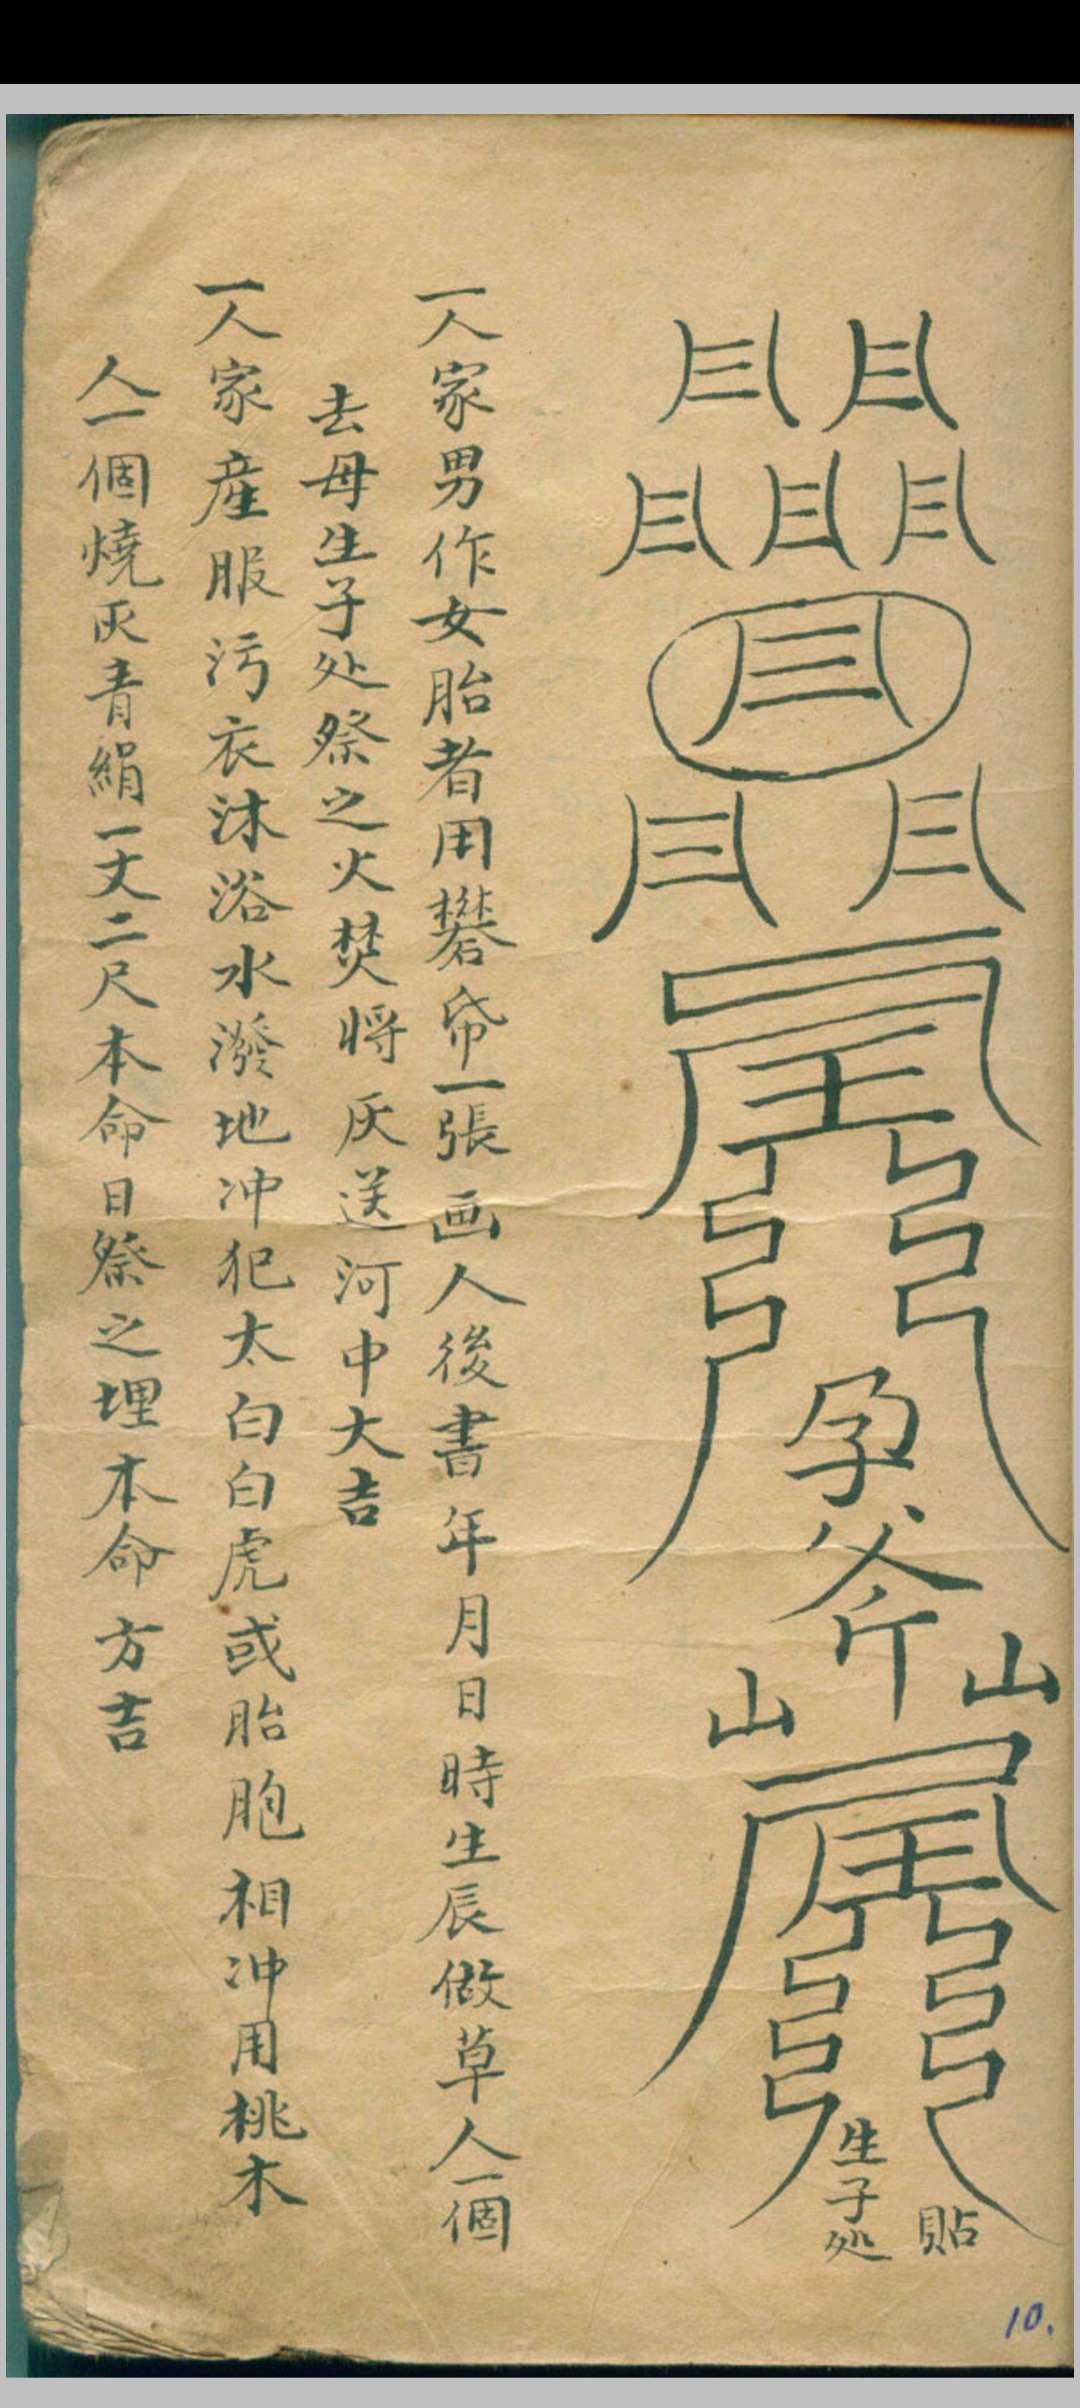 孕斧
山 山
貼
生子处
一人家男作女胎者用礬帋一張画人後書年月日時生辰做草人一個
去母生子处祭之火焚将灰送河中大吉
一人家産服污衣沐浴水潑地冲犯太白白虎或胎胞相冲用桃木
人一個燒灰青絹一丈二尺本命日祭之埋本命方吉
10.